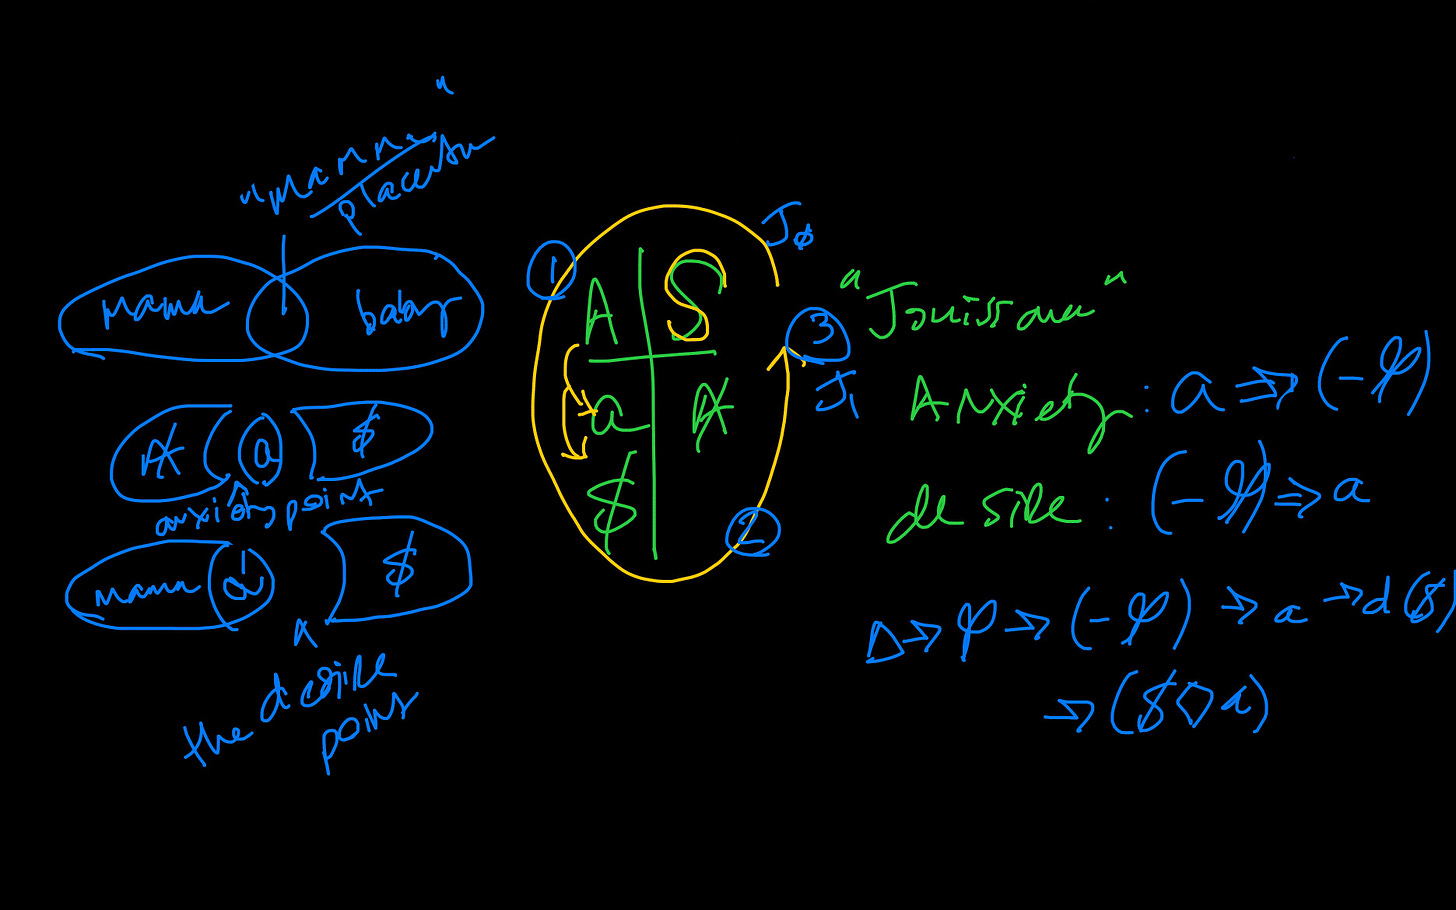 "mamma"
placenta
mama baby
Ⱥ a $
anxiety point
mama a $
the desire
point
① A S Jφ
a Ⱥ
$
②
③
J
"Jouissance"
Anxiety : a ⇒ (-φ)
desire : (-φ) ⇒ a
Δ → φ → (-φ) → a → d($)
→ ($◇a)